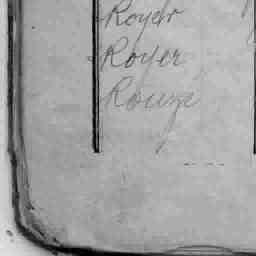 Royer
Royer
Rouze